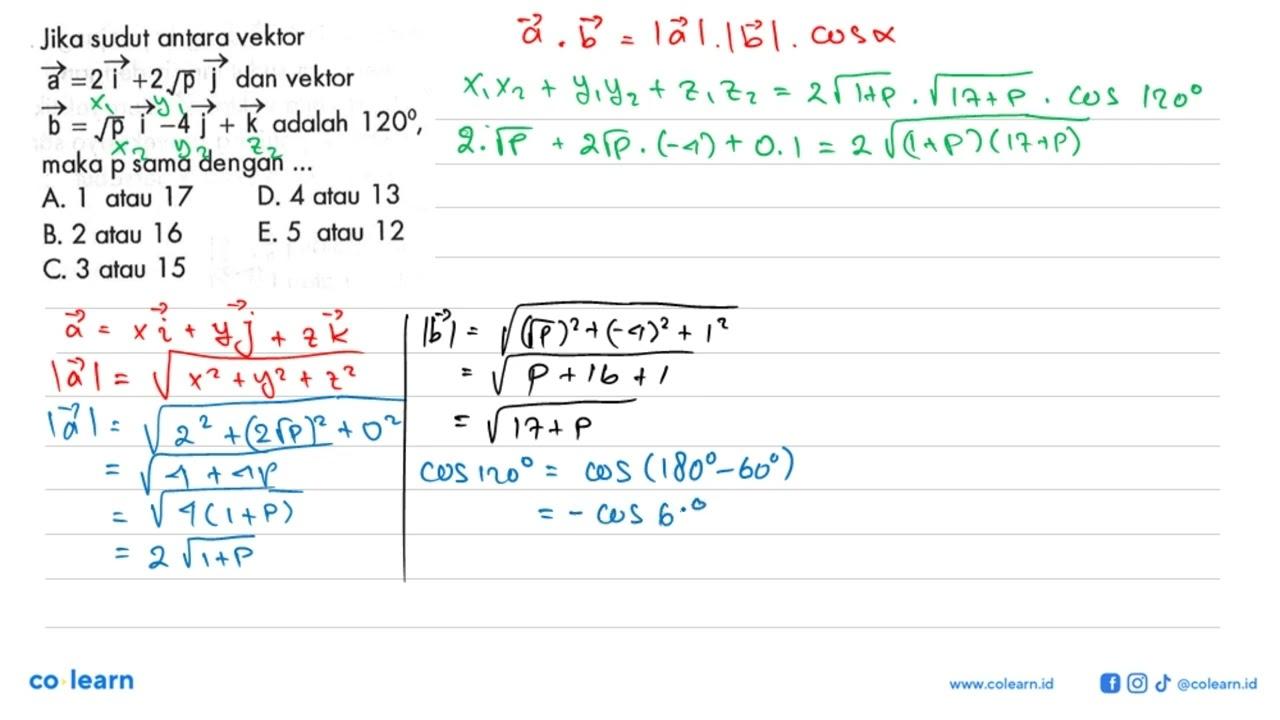 Jika sudut antara vektor
a⃗ = 2 i⃗ + 2√p j⃗ dan vektor
x₁ y₁
b⃗ = √p i⃗ -4 j⃗ + k⃗ adalah 120⁰,
x₂ y₂ z₂
maka p sama dengan ...
A. 1 atau 17 D. 4 atau 13
B. 2 atau 16 E. 5 atau 12
C. 3 atau 15
a⃗ . b⃗ = |a⃗| . |b⃗| . cos α
x₁x₂ + y₁y₂ + z₁z₂ = 2√(1+p) . √(17+p) . cos 120⁰
2.√p + 2√p . (-4) + 0.1 = 2√((1+p)(17+p))
a⃗ = x i⃗ + y j⃗ + z k⃗
|a⃗| = √(x² + y² + z²)
|a⃗| = √(2² + (2√p)² + 0²)
= √(4 + 4p)
= √(4(1+p))
= 2√(1+p)
|b⃗| = √((√p)² + (-4)² + 1²)
= √(p + 16 + 1)
= √(17+p)
cos 120⁰ = cos (180⁰ - 60⁰)
= - cos 60⁰
co learn
www.colearn.id
@colearn.id